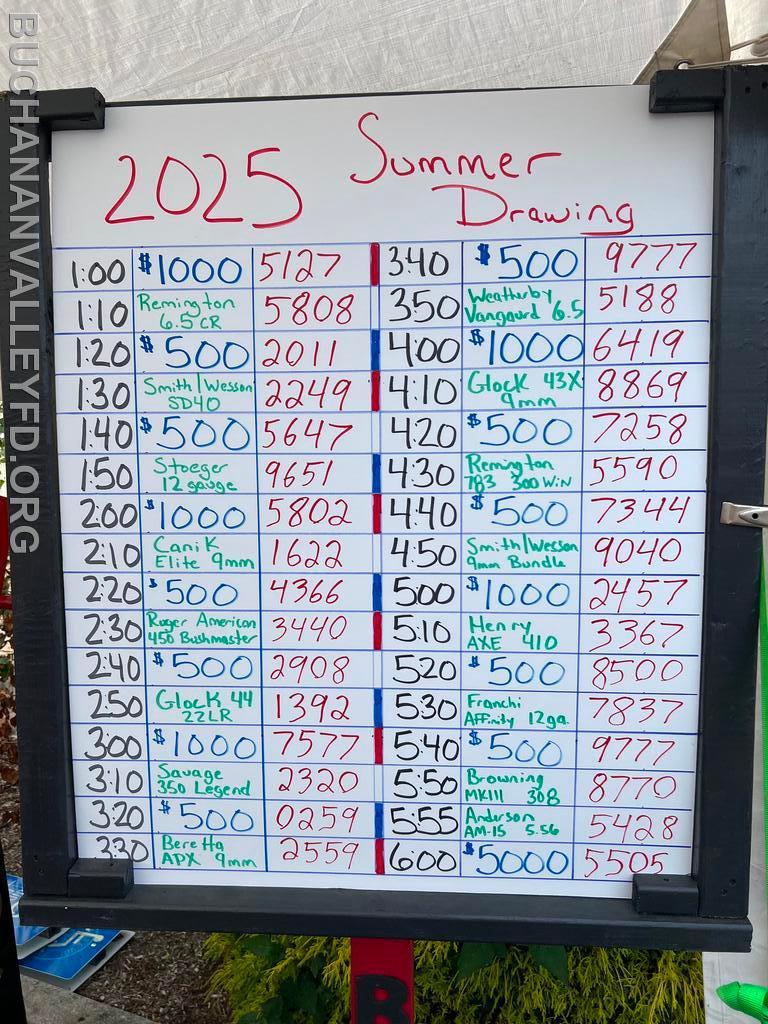 BUCHANANVALLEYFD.ORG
2025 Summer
Drawing
1:00 $1000 5127
1:10 Remington 6.5 CR 5808
1:20 $500 2011
1:30 Smith/Wesson SD40 2249
1:40 $500 5647
1:50 Stoeger 12 gauge 9651
2:00 $1000 5802
2:10 Canik Elite 9mm 1622
2:20 $500 4366
2:30 Ruger American 450 Bushmaster 3440
2:40 $500 2908
2:50 Glock 44 22LR 1392
3:00 $1000 7577
3:10 Savage 350 Legend 2320
3:20 $500 0259
3:30 Beretta APX 9mm 2559
3:40 $500 9777
350 Weatherby Vangaurd 6.5 5188
4:00 $1000 6419
4:10 Glock 43X 9mm 8869
4:20 $500 7258
4:30 Remington 783 300 WIN 5590
4:40 $500 7344
4:50 Smith/Wesson 9mm Bundle 9040
5:00 $1000 2457
5:10 Henry AXE 410 3367
520 $500 8500
5:30 Franchi Affinity 12ga. 7837
5:40 $500 9777
5:50 Browning MKIII 308 8770
5:55 Anderson AM-15 5.56 5428
6:00 $5000 5505
B